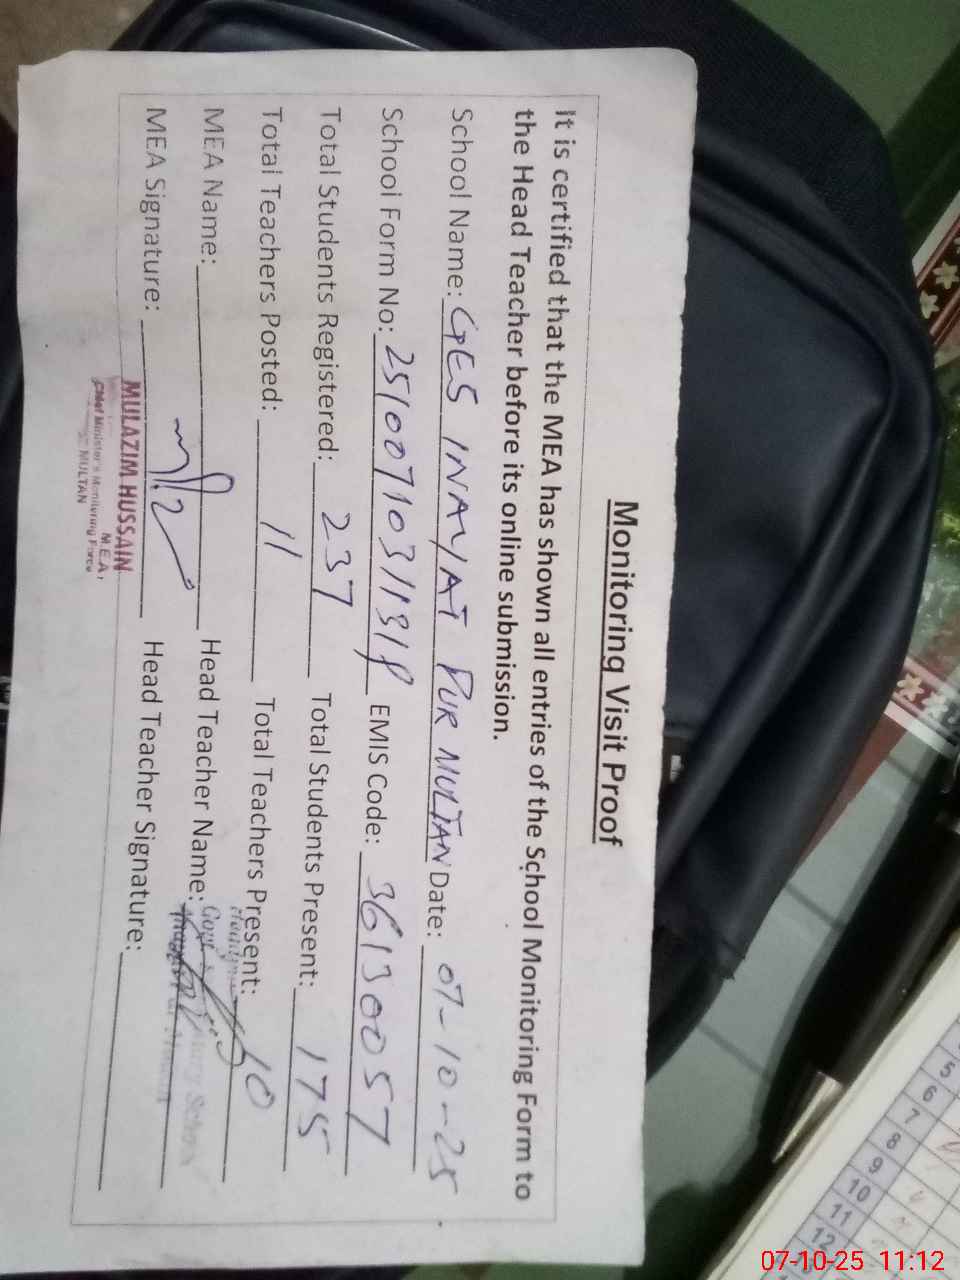 Monitoring Visit Proof
It is certified that the MEA has shown all entries of the School Monitoring Form to
the Head Teacher before its online submission.
School Name: GES INAYAT PUR MULTAN Date: 07-10-25
School Form No: EMIS Code: 36130057
Total Students Registered: 237 Total Students Present: 175
Total Teachers Posted: 11 Total Teachers Present: 10
MEA Name: Head Teacher Name:
MEA Signature: Head Teacher Signature:
MULAZIM HUSSAIN
M.E.A,
Chief Minister's Monitering Force
MULTAN
5
6
7
8
9
10
11
12
07-10-25 11:12